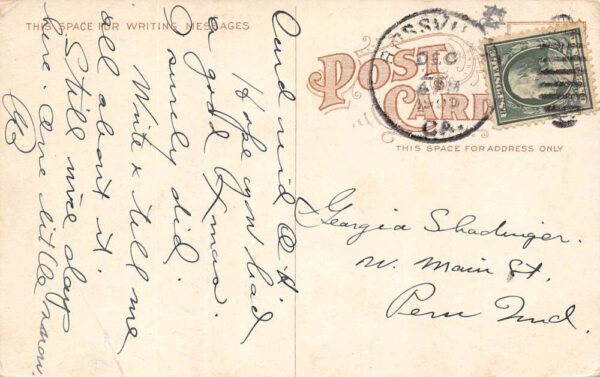 THIS SPACE FOR WRITING MESSAGES
Card rec'd O.K.
Hope you had
a good Xmas.
I surely did.
Write & tell me
all about it.
Still nice days
here. One little snow.
POST
CARD
THIS SPACE FOR ADDRESS ONLY
ROSSVIL
DEC
1909
GA.
Georgia Shadinger.
W. Main St.
Peru Ind.